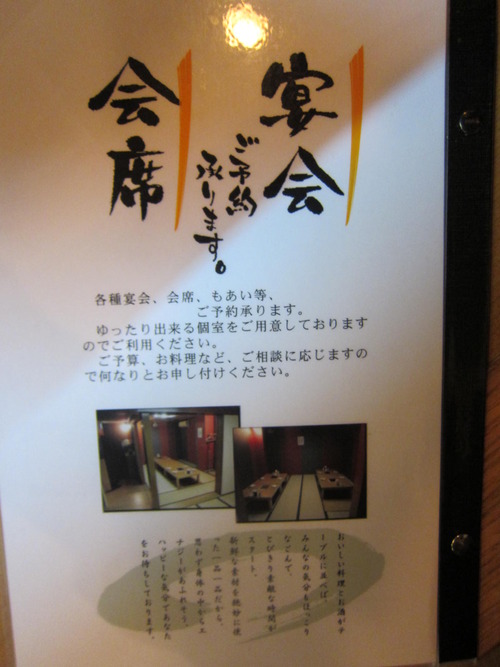 宴会
会席
ご予約
承ります。
各種宴会、会席、もあい等、
ご予約承ります。
ゆったり出来る個室をご用意しております
のでご利用ください。
ご予算、お料理など、ご相談に応じますの
で何なりとお申し付けください。
おいしい料理とお酒がテ
ーブルに並べば、
みんなの気分もほっこり
なごんで、
とびきり素敵な時間が
スタート。
新鮮な素材を絶妙に使
った一品一品だから、
思わず身体の中からエ
ナジーがあふれそう。
ハッピーな気分であなた
をお待ちしております。